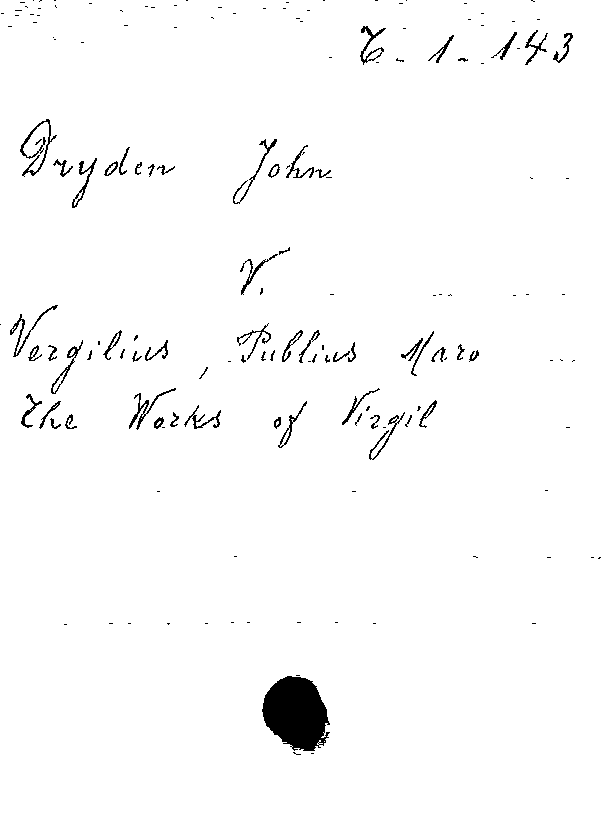 C-1-143
Dryden John
V.
Vergilius, Publius Maro
The Works of Virgil